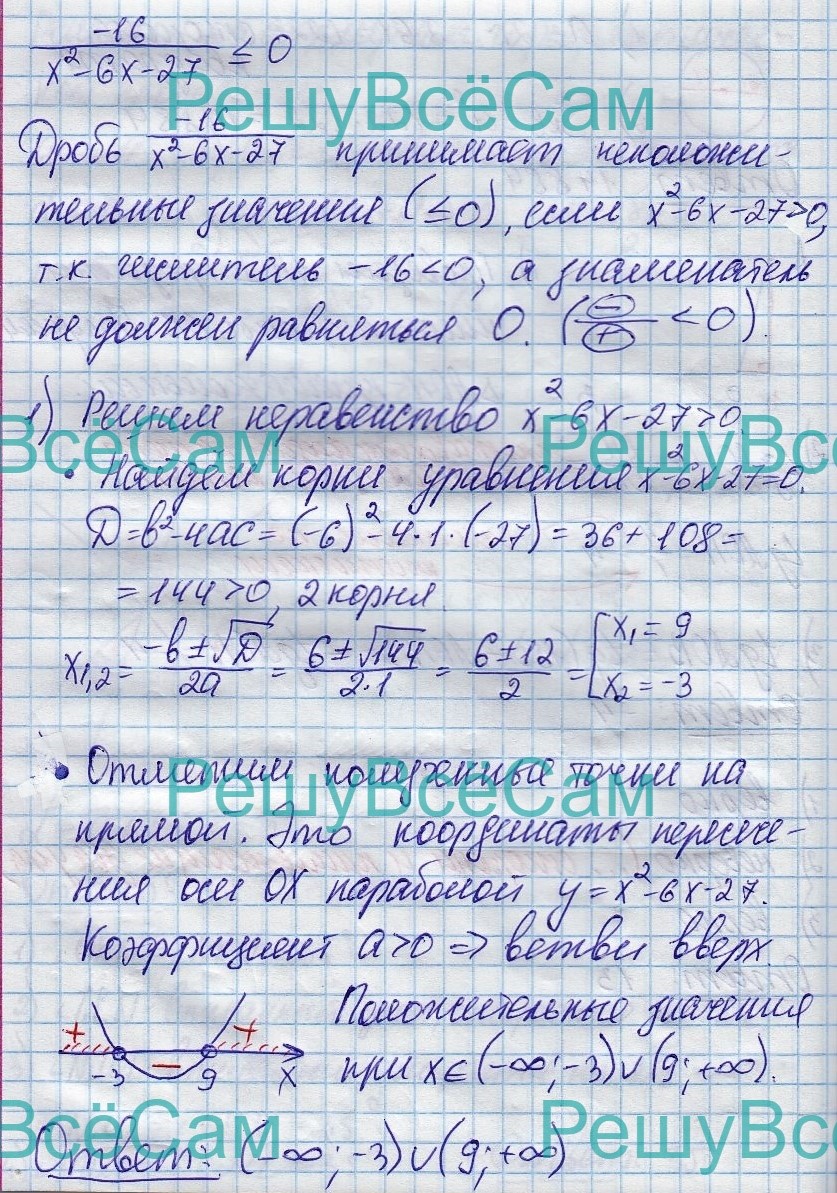 -16 / x²-6x-27 ≤ 0
РешуВсёСам
Дробь -16 / x²-6x-27 принимает неположи-
тельные значения (≤0), если x²-6x-27>0,
т.к. числитель -16<0, а знаменатель
не должен равняться 0. (- / + <0).
1) Решим неравенство x²-6x-27>0.
ВсёСам РешуВсё
• Найдём корни уравнения x²-6x-27=0.
D=b²-4ac=(-6)²-4·1·(-27)=36+108=
=144>0, 2 корня.
x1,2 = -b±√D / 2a = 6±√144 / 2·1 = 6±12 / 2 = [x₁=9
x₂=-3
• Отметим полученные точки на
РешуВсёСам
прямой. Это координаты пересече-
ния оси OX параболой y=x²-6x-27.
Коэффициент a>0 => ветви вверх.
+ - + Положительные значения
-3 9 X при x∈(-∞;-3)∪(9;+∞).
ВсёСам РешуВсё
Ответ: (-∞;-3)∪(9;+∞)